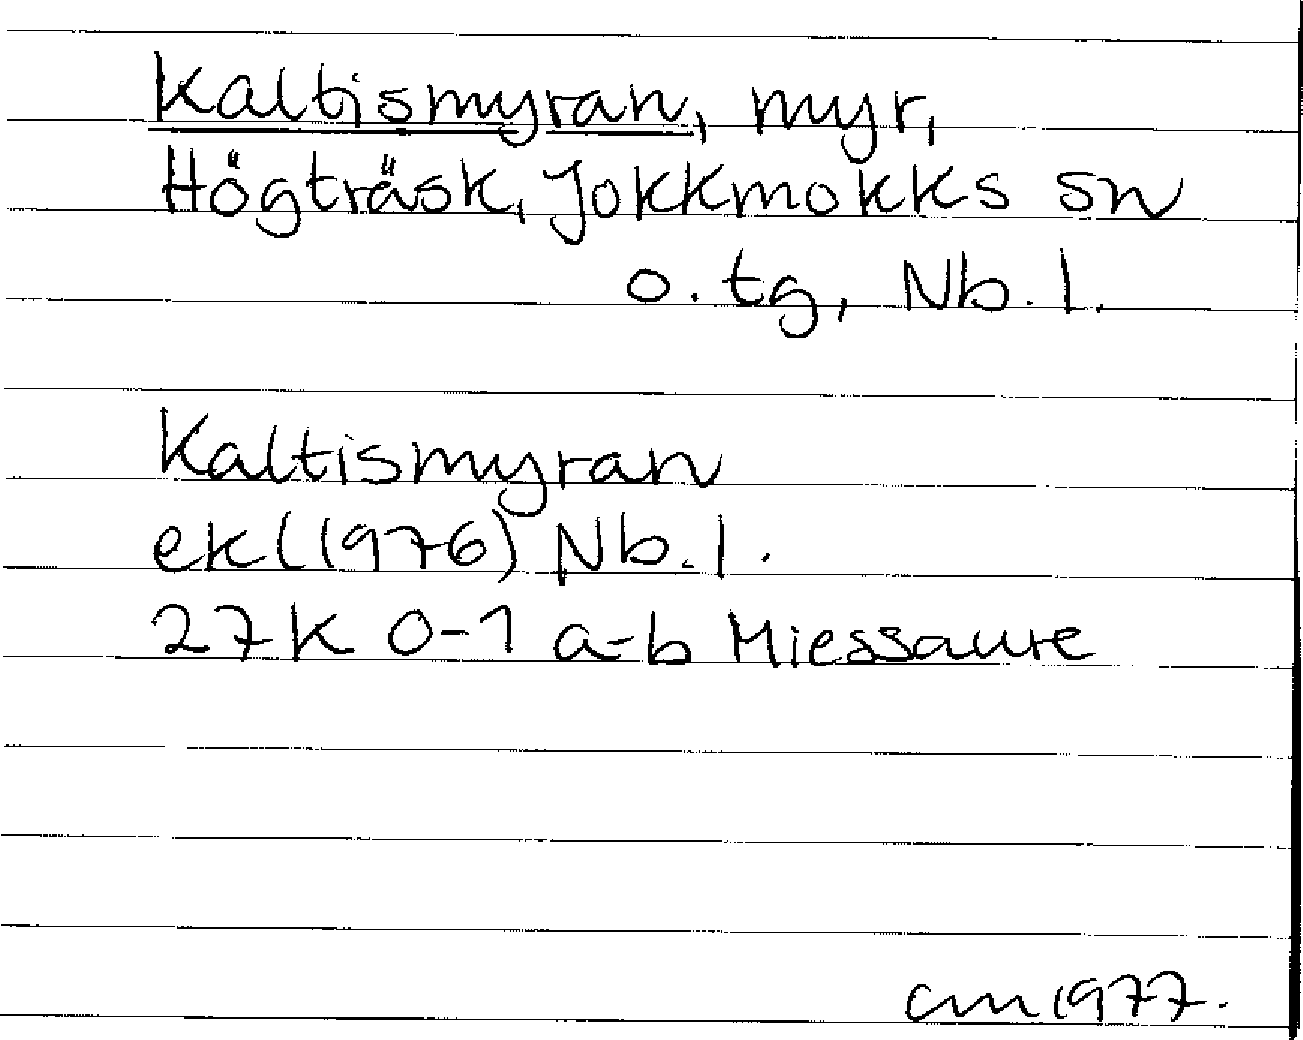 Kaltismyran, myr,
Högträsk, Jokkmokks sn
o. tg, Nb. l.
Kaltismyran
ek (1976) Nb. l.
27K 0-1 a-b Miessaure
cm 1977.